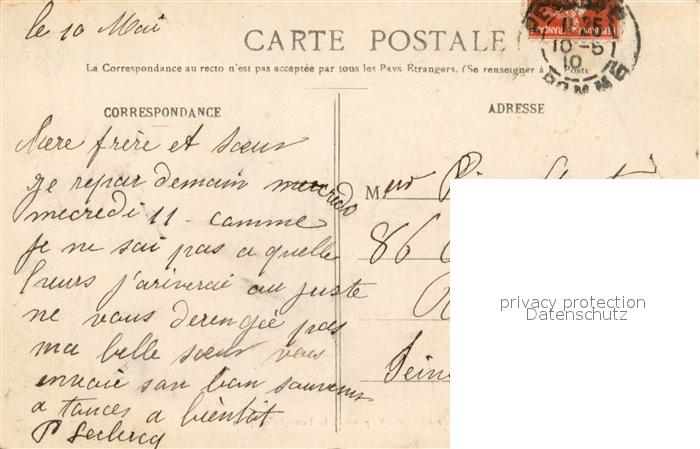 le 10 Mai
CARTE POSTALE
La Correspondance au recto n'est pas acceptée par tous les Pays Étrangers. (Se renseigner à Poste
CORRESPONDANCE
frère et sœur
je repar demain
mecredi 11 - comme
je ne sai pas a quelle
heurs j'ariverai au juste
ne vous derengée pas
ma belle sœur vous
envoie son bon souvenir
a tances a bientôt
P Leclercq
ADRESSE
M
86
Sein
10 - 5
10
SOMME
privacy protection
Datenschutz